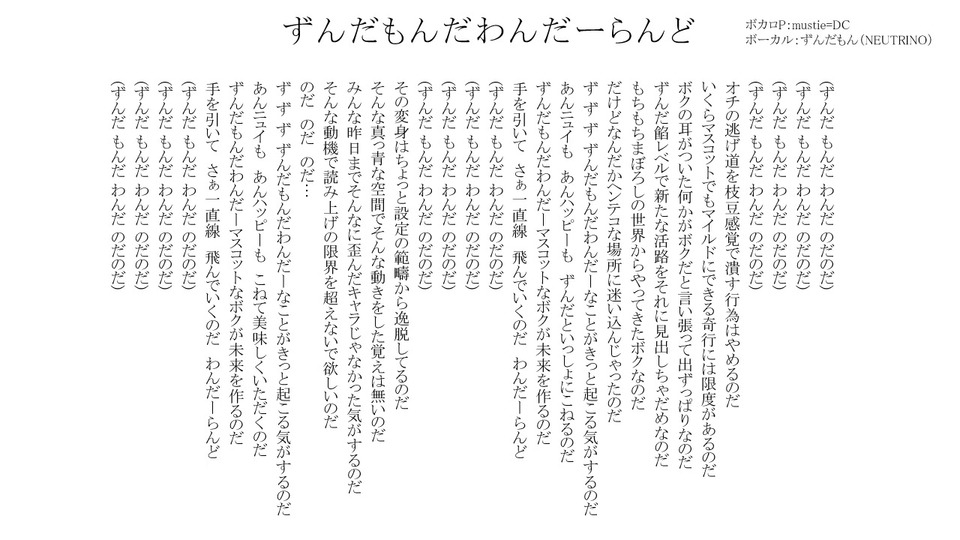 ずんだもんだわんだーらんど
ボカロP：mustie=DC
ボーカル：ずんだもん（NEUTRINO）
（ずんだ もんだ わんだ のだのだ）
（ずんだ もんだ わんだ のだのだ）
（ずんだ もんだ わんだ のだのだ）
（ずんだ もんだ わんだ のだのだ）
オチの逃げ道を枝豆感覚で潰す行為はやめるのだ
いくらマスコットでもマイルドにできる奇行には限度があるのだ
ボクの耳がついた何かがボクだと言い張って出ずっぱりなのだ
ずんだ餡レベルで新たな活路をそれに見出しちゃだめなのだ
もちもちまぼろしの世界からやってきたボクなのだ
だけどなんだかヘンテコな場所に迷い込んじゃったのだ
ず ず ず ずんだもんだわんだーなことがきっと起こる気がするのだ
あんニュイも あんハッピーも ずんだといっしょにこねるのだ
ずんだもんだわんだーマスコットなボクが未来を作るのだ
手を引いて さぁ一直線 飛んでいくのだ わんだーらんど
（ずんだ もんだ わんだ のだのだ）
（ずんだ もんだ わんだ のだのだ）
（ずんだ もんだ わんだ のだのだ）
（ずんだ もんだ わんだ のだのだ）
その変身はちょっと設定の範疇から逸脱してるのだ
そんな真っ青な空間でそんな動きをした覚えは無いのだ
みんな昨日までそんなに歪んだキャラじゃなかった気がするのだ
そんな動機で読み上げの限界を超えないで欲しいのだ
のだ のだ のだ…
ず ず ず ずんだもんだわんだーなことがきっと起こる気がするのだ
あんニュイも あんハッピーも こねて美味しくいただくのだ
ずんだもんだわんだーマスコットなボクが未来を作るのだ
手を引いて さぁ一直線 飛んでいくのだ わんだーらんど
（ずんだ もんだ わんだ のだのだ）
（ずんだ もんだ わんだ のだのだ）
（ずんだ もんだ わんだ のだのだ）
（ずんだ もんだ わんだ のだのだ）